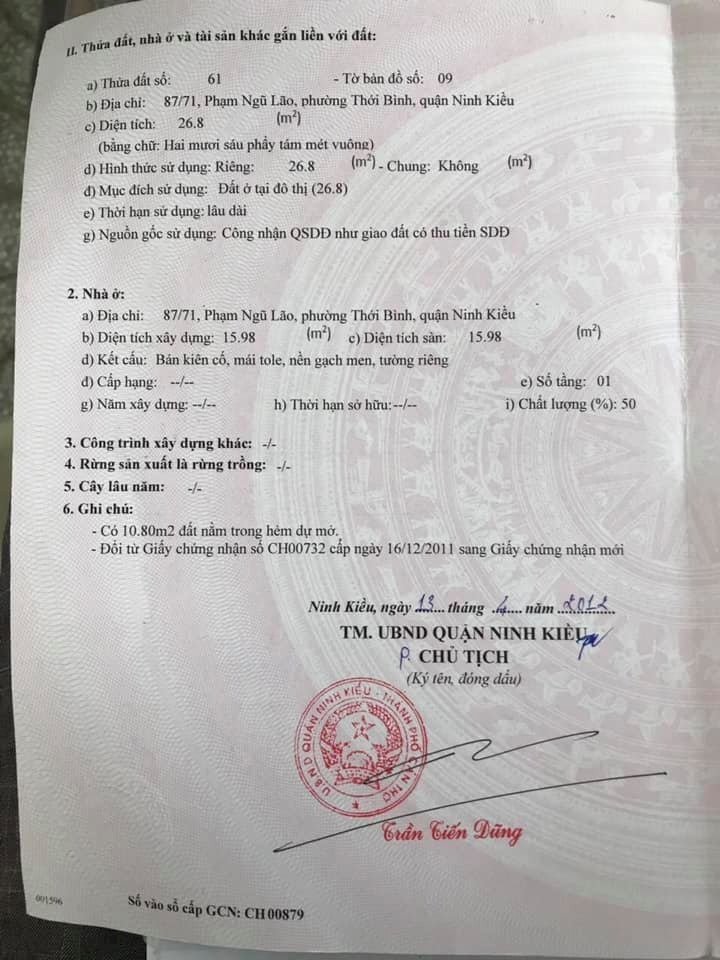 II. Thửa đất, nhà ở và tài sản khác gắn liền với đất:
a) Thửa đất số: 61 - Tờ bản đồ số: 09
b) Địa chỉ: 87/71, Phạm Ngũ Lão, phường Thới Bình, quận Ninh Kiều
c) Diện tích: 26.8 (m²)
(bằng chữ: Hai mươi sáu phẩy tám mét vuông)
d) Hình thức sử dụng: Riêng: 26.8 (m²) - Chung: Không (m²)
đ) Mục đích sử dụng: Đất ở tại đô thị (26.8)
e) Thời hạn sử dụng: lâu dài
g) Nguồn gốc sử dụng: Công nhận QSDĐ như giao đất có thu tiền SDĐ
2. Nhà ở:
a) Địa chỉ: 87/71, Phạm Ngũ Lão, phường Thới Bình, quận Ninh Kiều
b) Diện tích xây dựng: 15.98 (m²) c) Diện tích sàn: 15.98 (m²)
d) Kết cấu: Bán kiên cố, mái tole, nền gạch men, tường riêng
đ) Cấp hạng: --/-- e) Số tầng: 01
g) Năm xây dựng: --/-- h) Thời hạn sở hữu:--/-- i) Chất lượng (%): 50
3. Công trình xây dựng khác: -/-
4. Rừng sản xuất là rừng trồng: -/-
5. Cây lâu năm: -/-
6. Ghi chú:
- Có 10.80m2 đất nằm trong hẻm dự mở.
- Đổi từ Giấy chứng nhận số CH00732 cấp ngày 16/12/2011 sang Giấy chứng nhận mới
Ninh Kiều, ngày 13 tháng 4 năm 2012
TM. UBND QUẬN NINH KIỀU
P. CHỦ TỊCH
(Ký tên, đóng dấu)
U.B.N.D QUẬN NINH KIỀU - THÀNH PHỐ CẦN THƠ
Trần Tiến Dũng
001596
Số vào sổ cấp GCN: CH00879